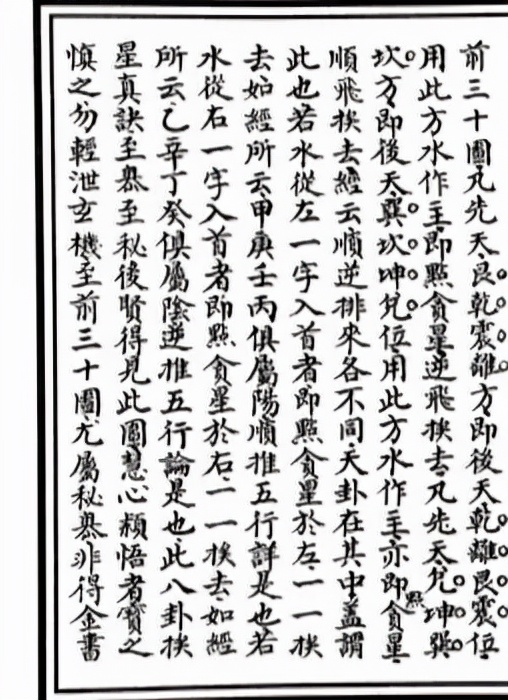 前三十圖凡先天艮乾震離方即後天乾離艮震位
用此方水作主即點貪星逆飛挨去凡先天兌坤巽
坎方即後天巽坎坤兌位用此方水作主亦即點貪星
順飛挨去經云順逆排來各不同天卦在其中蓋謂
此也若水從左一字入首者即點貪星於左一一挨
去如經所云甲庚壬丙俱屬陽順推五行詳是也若
水從右一字入首者即點貪星於右一一挨去如經
所云乙辛丁癸俱屬陰逆推五行論是也此八卦挨
星真訣至慕至秘後賢得見此圖慧心頴悟者寶之
慎之勿輕泄玄機至前三十圖尤屬秘慕非得金書